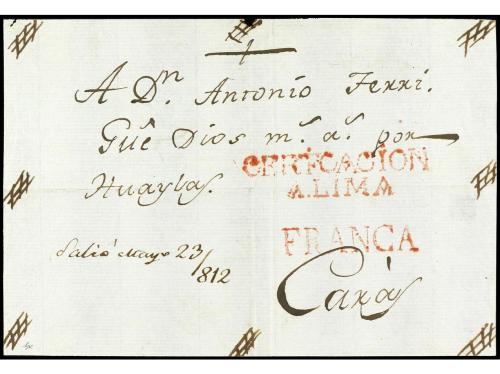 A Dn. Antonio Ferri.
Gũe Dios ms. as. por
Huaylas.
CERTFCACION
A.LIMA
Salió Mayo 23/812
FRANCA
Caràs